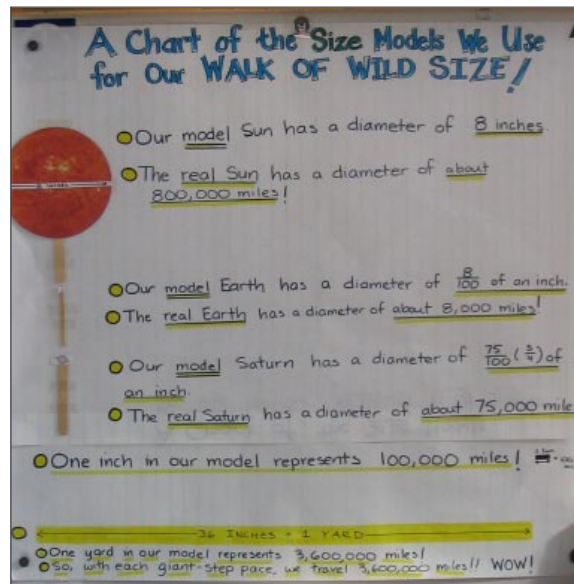 A Chart of the Size Models We Use
for Our WALK OF WILD SIZE!
Our model Sun has a diameter of 8 inches.
The real Sun has a diameter of about
800,000 miles!
Our model Earth has a diameter of 8/100 of an inch.
The real Earth has a diameter of about 8,000 miles!
Our model Saturn has a diameter of 75/100 (3/4) of
an inch.
The real Saturn has a diameter of about 75,000 mile
One inch in our model represents 100,000 miles!
36 INCHES = 1 YARD
One yard in our model represents 3,600,000 miles!
So, with each giant-step pace, we travel 3,600,000 miles!! WOW!